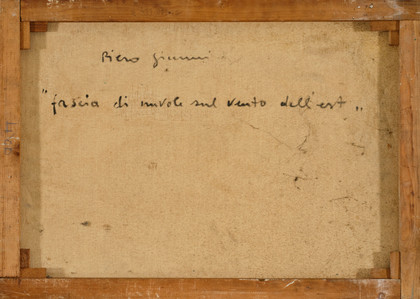 Piero Gianni
"fascia di nuvole sul vento dell'est"